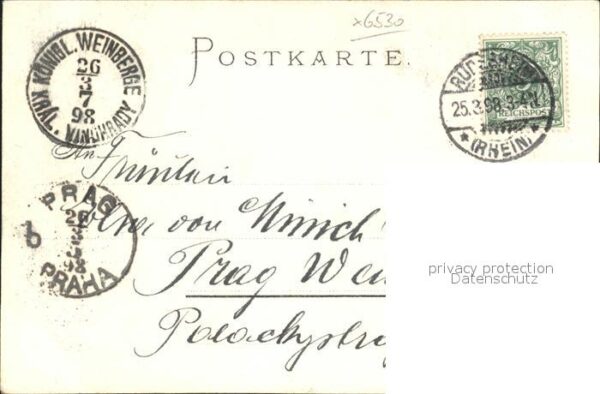 x6530
POSTKARTE.
KÖNIGL. WEINBERGE
26
3
7
98
VINOHRADY
RÜDESHEIM
25.3.98.3-4N.
* (RHEIN) *
REICHSPOST
An
Fräulein
von
Prag
Palackystr
PRAG
26
3
98
PRAHA
b
privacy protection
Datenschutz